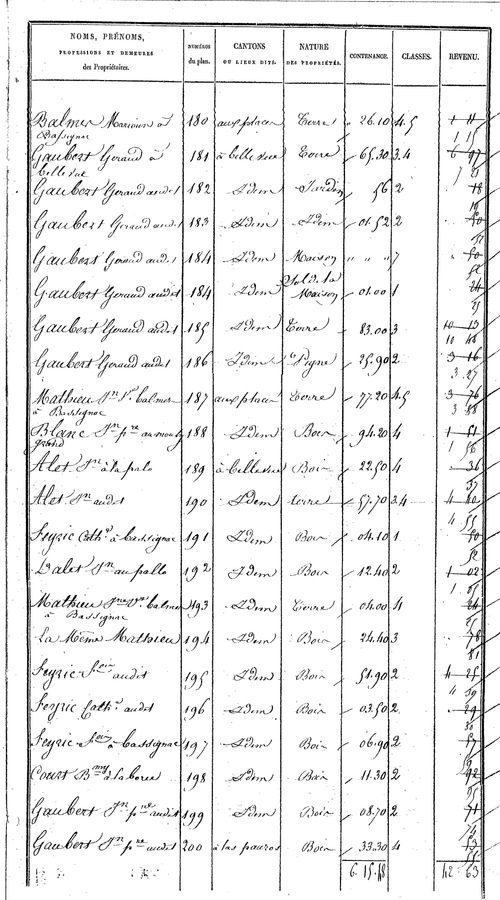 NOMS, PRÉNOMS, PROFESSIONS ET DEMEURES des Propriétaires. NUMÉROS du plan. CANTONS OU LIEUX DITS. NATURE DES PROPRIÉTÉS. CONTENANCE. CLASSES. REVENU.
Balmer à Bassignac 180 aux places Terre 26.10 4.5 1 11 1 15
Gaubert Geraud à bellevue 181 à bellevue Terre 65.30 3.4 6 97 7 21
Gaubert Geraud audit 182 Idem Jardin 56 2 18 19
Gaubert Geraud audit 183 Idem Idem 01.52 2 50 52
Gaubert Geraud audit 184 Idem Maison " " " 7 50 52
Gaubert Geraud audit 184 Idem Sol de la Maison 01.00 1 24 25
Gaubert Geraud audit 185 Idem Terre 83.00 3 10 13 10 48
Gaubert Geraud audit 186 Idem Vigne 25.90 2 3 16 3 27
Mathieu Jn balmer à Bassignac 187 aux places Terre 77.20 4.5 3 76 3 88
Blanc Jn 188 Idem Bois 94.20 4 1 51 1 56
Alet Jn à la pale 189 à bellevue Bois 22.50 4 36 37
Alet Jn audit 190 Idem terre 57.70 3.4 4 40 4 55
Feyric Cath à Bassignac 191 Idem Bois 04.10 1 50 52
Dalet Jn au palle 192 Idem Bois 12.40 2 1 02 1 05
Mathieu balmer à Bassignac 193 Idem Terre 04.00 4 24 25
La Même Mathieu 194 Idem Bois 24.40 3 78 81
Feyric audit 195 Idem Bois 51.90 2 4 25 4 39
Feyric Cath audit 196 Idem Bois 03.50 2 29 30
Feyric à Bassignac 197 Idem Bois 06.90 2 57
Court à la borie 198 Idem Bois 11.30 2 92 95
Gaubert Jn audit 199 Idem Bois 08.70 2 71 74
Gaubert Jn audit 200 à las pauzes Bois 33.30 4 53 55
6.15.48 42 63